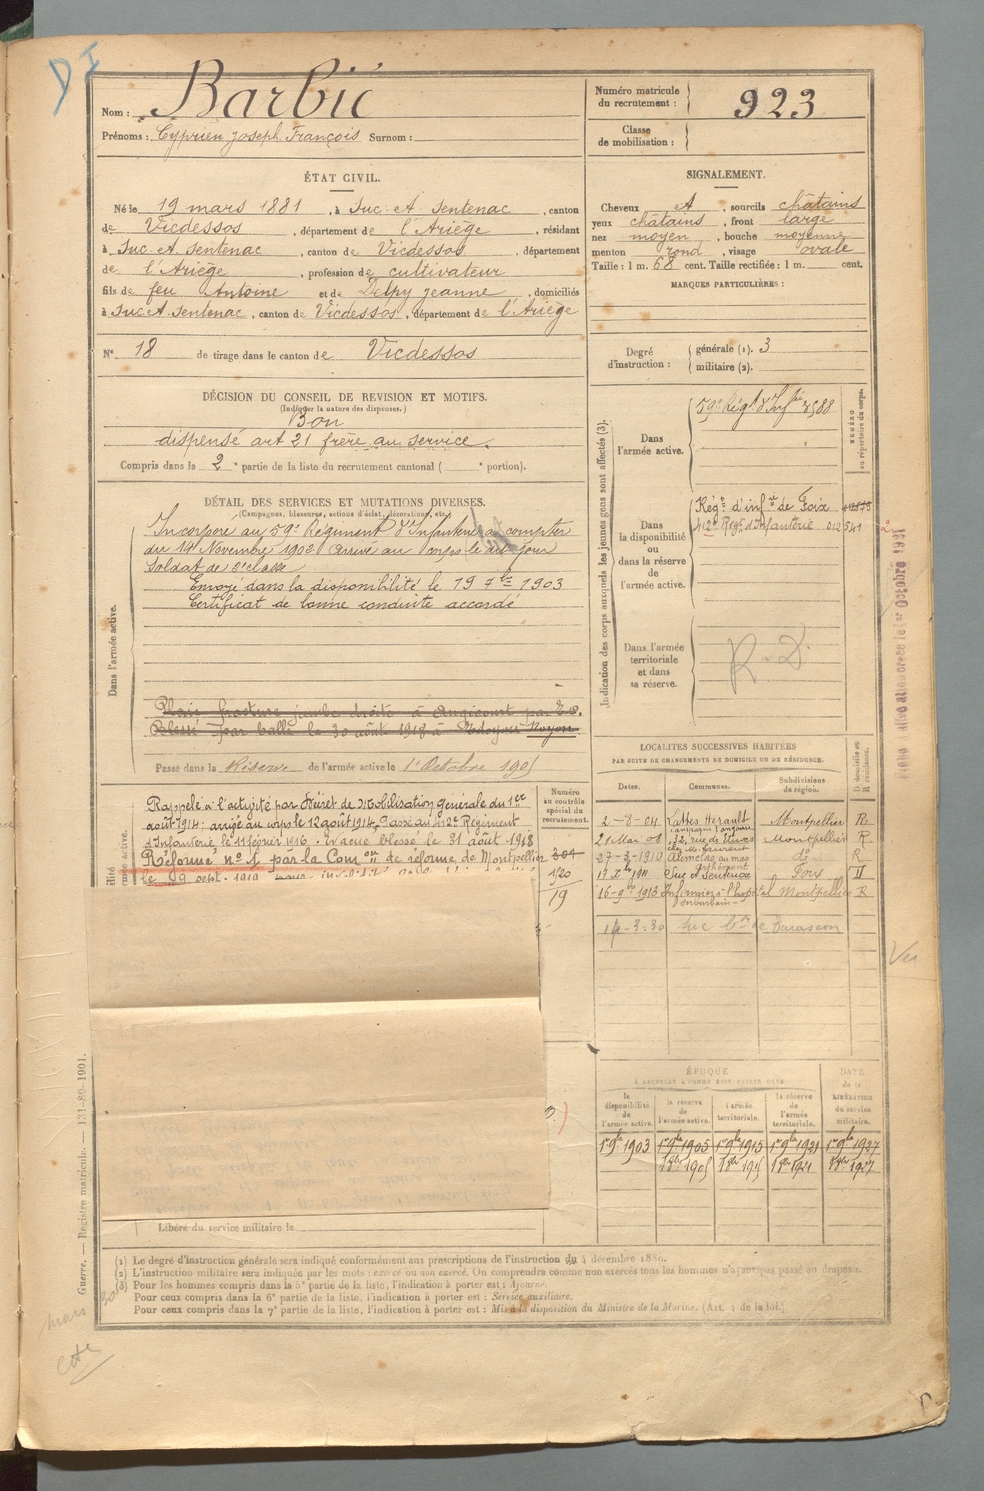 Nom : Barbié
Prénoms : Cyprien Joseph François Surnom :
ÉTAT CIVIL.
Né le 19 mars 1881, à Suc. et. Sentenac, canton
de Vicdessos, département de l'Ariège, résidant
à Suc. et. Sentenac, canton de Vicdessos, département
de l'Ariège, profession de cultivateur
fils de feu Antoine et de Delpy Jeanne, domiciliés
à Suc. et. Sentenac, canton de Vicdessos, département de l'Ariège
N° 18 de tirage dans le canton de Vicdessos
DÉCISION DU CONSEIL DE REVISION ET MOTIFS.
(Indiquer la nature des dispenses.)
Bon
dispensé art 21 frère au service.
Compris dans la 2e partie de la liste du recrutement cantonal ( e portion).
DÉTAIL DES SERVICES ET MUTATIONS DIVERSES.
(Campagnes, blessures, actions d'éclat, décorations, etc.)
Dans l'armée active.
Incorporé au 59e Régiment d'Infanterie à compter
du 14 Novembre 1902 Arrivé au Corps le dit jour
Soldat de 2e classe
Envoyé dans la disponibilité le 19 7bre 1903
Certificat de bonne conduite accordé
Plaie fracture jambe droite à
Blessé par balle le 30 août 1918 à Noyon
Passé dans la Réserve de l'armée active le 1er Octobre 1905
Rappelé à l'activité par Décret de Mobilisation générale du 1er
août 1914; arrivé au corps le 12 août 1914. Passé au 412e Régiment
d'Infanterie le 11 février 1916. Evacué blessé le 31 août 1918
Réformé n° 1 par la Com on de réforme de Montpellier
le 9 sept. 1919
Libéré du service militaire le
Numéro
au contrôle
spécial du
recrutement.
301
1/20
19
Numéro matricule
du recrutement : 923
Classe
de mobilisation :
SIGNALEMENT.
Cheveux et, sourcils châtains
yeux châtains, front large
nez moyen, bouche moyenne
menton rond, visage ovale
Taille : 1 m. 68 cent. Taille rectifiée : 1 m. cent.
MARQUES PARTICULIÈRES :
Degré
d'instruction :
générale (1). 3
militaire (2).
Indication des corps auxquels les jeunes gens sont affectés (3).
NUMÉRO
au répertoire du corps.
Dans
l'armée active.
59e Régt d'Infrie 3588
Dans
la disponibilité
ou
dans la réserve
de
l'armée active.
Régt d'infie de Foix
412e Regt d'Infanterie 012541
Dans l'armée
territoriale
et dans
sa réserve.
R. D.
LOCALITÉS SUCCESSIVES HABITÉES
PAR SUITE DE CHANGEMENTS DE DOMICILE OU DE RÉSIDENCE.
D domicile ou
R résidence.
Dates. Communes. Subdivisions
de région.
2-8-04 Lattes Hérault Montpellier R
21 Mai 08 Montpellier R
27-3-1910 do R
1911 Suc et Sentenac Foix D
16-9-1913 Infirmier à l'hopital Montpellier R
suburbain
14-3-30 Suc de Tarascon
ÉPOQUE
À LAQUELLE L'HOMME DOIT PASSER DANS
DATE
de la
LIBÉRATION
du service
militaire.
la
disponibilité
de
l'armée active.
la réserve
de
l'armée active.
l'armée
territoriale.
la réserve
de
l'armée
territoriale.
1er 9bre 1903 1er 9bre 1905 1er 9bre 1915 1er 9bre 1921 1er 9bre 1927
1er 8bre 1905 1er 8bre 1915 1er 8bre 1921 1er 8bre 1927
(1) Le degré d'instruction générale sera indiqué conformément aux prescriptions de l'instruction du 4 décembre 1889.
(2) L'instruction militaire sera indiquée par les mots : exercé ou non exercé. On comprendra comme non exercés tous les hommes n'ayant pas passé au drapeau.
(3) Pour les hommes compris dans la 5e partie de la liste, l'indication à porter est : Ajourné.
Pour ceux compris dans la 6e partie de la liste, l'indication à porter est : Service auxiliaire.
Pour ceux compris dans la 7e partie de la liste, l'indication à porter est : Mis à la disposition du Ministre de la Marine. (Art. 4 de la loi.)
Guerre. — Registre matricule. — 131-89-1901.